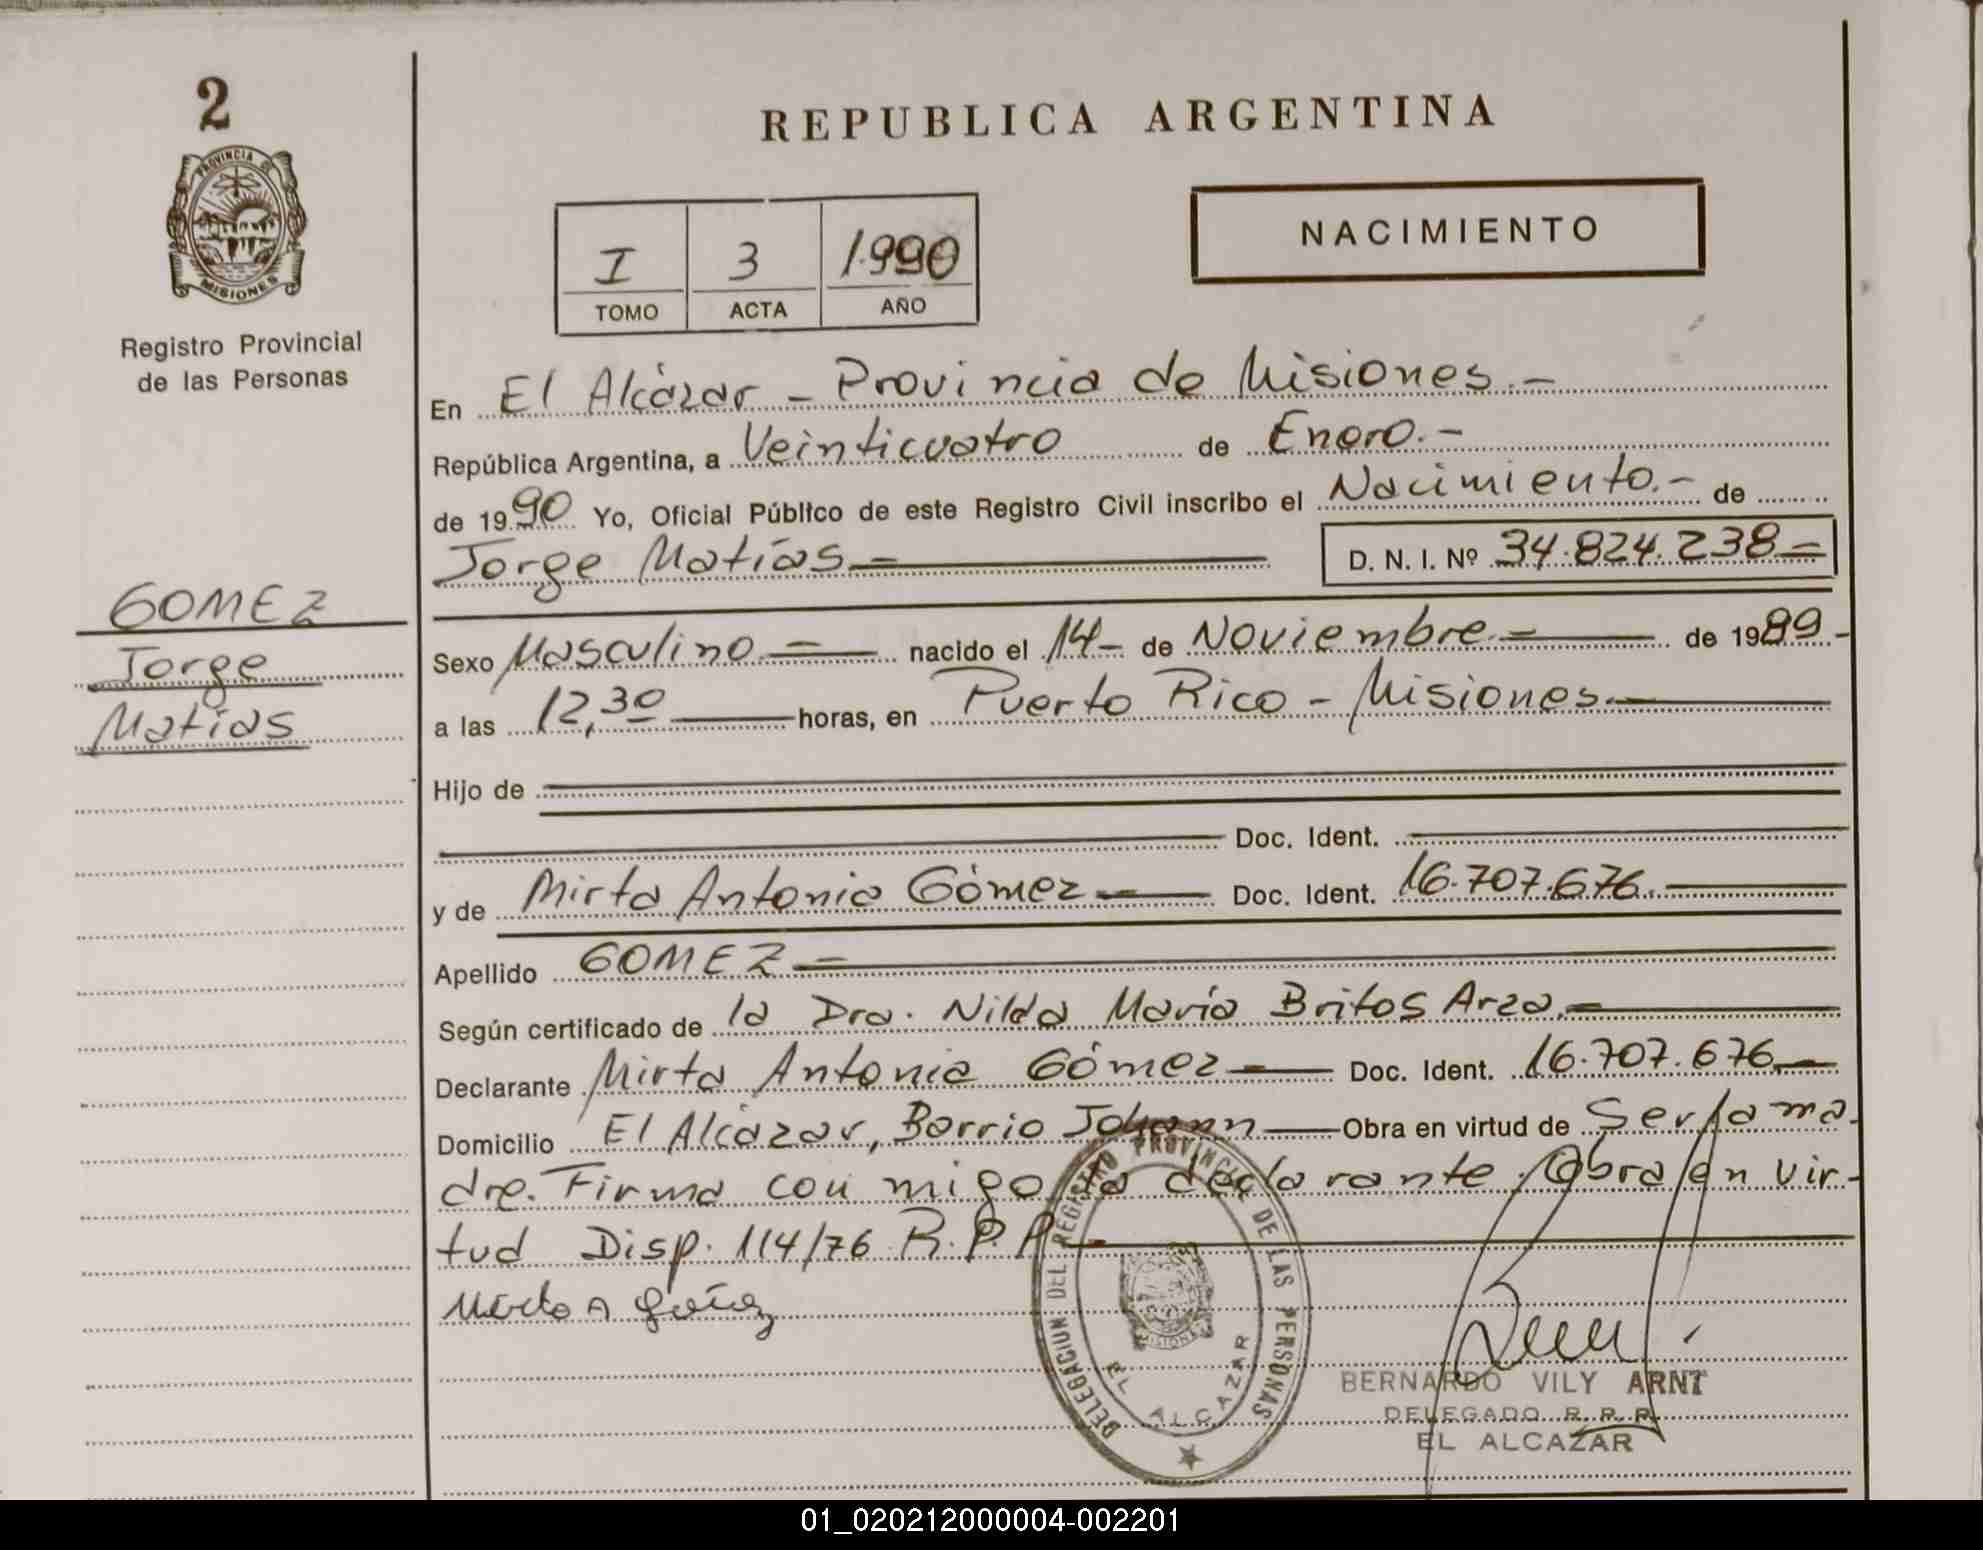 2
REPUBLICA ARGENTINA
PROVINCIA DE
MISIONES
Registro Provincial
de las Personas
I 3 1.990
TOMO ACTA AÑO
NACIMIENTO
En El Alcázar - Provincia de Misiones.-
República Argentina, a Veinticuatro de Enero.-
de 1990 Yo, Oficial Público de este Registro Civil inscribo el Nacimiento.- de
Jorge Matías - D. N. I. Nº 34.824.238 -
GOMEZ
Jorge
Matías
Sexo Masculino - nacido el 14 - de Noviembre - de 1989 -
a las 12,30 horas, en Puerto Rico - Misiones.
Hijo de
Doc. Ident.
y de Mirta Antonia Gómez - Doc. Ident. 16.707.676.
Apellido GOMEZ -
Según certificado de la Dra. Nilda María Britos Arza.-
Declarante Mirta Antonia Gómez - Doc. Ident. 16.707.676 -
Domicilio El Alcázar, Barrio Johann - Obra en virtud de Ser la ma-
dre. Firma con migo la declarante. Obra en vir-
tud Disp. 114/76 R.P.P -
Mirta A Gómez
DELEGACIUN DEL REGISTRO PROVINCIAL DE LAS PERSONAS
MISIONES
EL ALCAZAR
BERNARDO VILY ARNT
DELEGADO R. P. P.
EL ALCAZAR
01_020212000004-002201